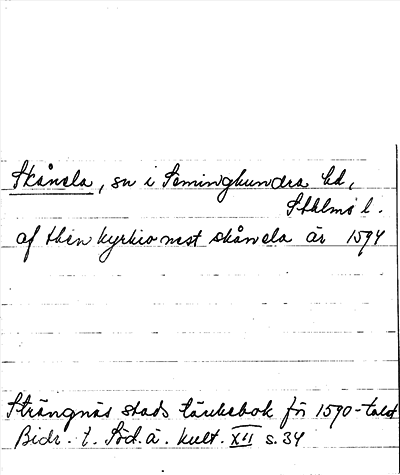 Skånela, sn i Seminghundra hd,
Sthlms l.
af then kyrkio nest skånela är 1594
Strängnäs stads tänkebok för 1590-talet
Bidr. t. Söd. ä. kult. XII s. 34